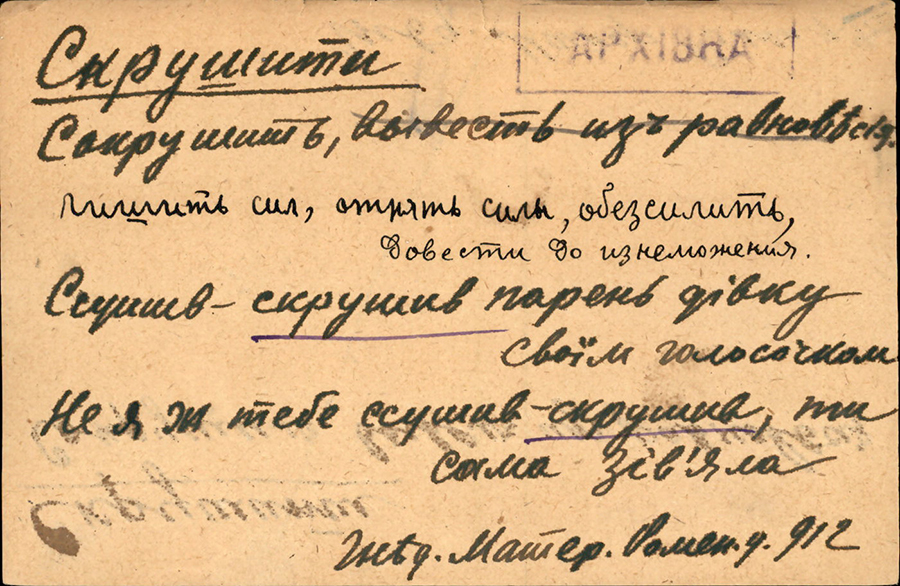 АРХІВНА
Скрушити
Сокрушить, вывесть изъ равновѣсія.
лишить сил, отнять силы, обезсилить,
довести до изнеможения.
Ссушив - скрушив парень дівку
своїм голосочком
Не я ж тебе ссушив - скрушив, ти
сама зів'яла
Матер. Ромен. у. 912